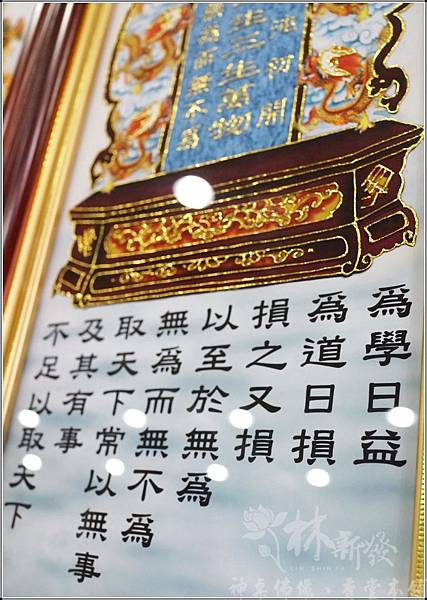 開
生三生萬物
無為而無不為
為學日益
為道日損
損之又損
以至於無為
無為而無不為
取天下常以無事
及其有事
不足以取天下
林新發
LIN SHIN FA
神桌佛像